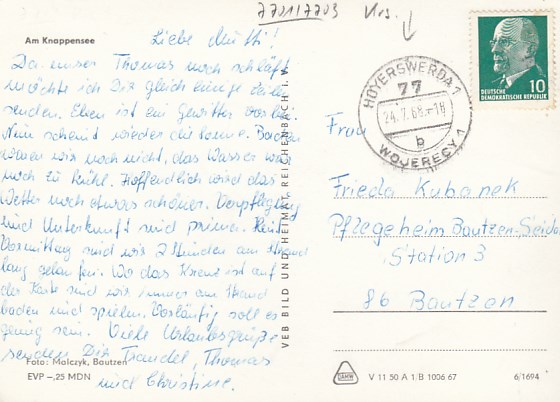 7701/7703 Krs.
Am Knappensee
Liebe Mutti!
Da unser Thomas noch schläft
möchte ich Dir gleich einige Zeilen
senden. Eben ist ein Gewitter vorbei.
Nun scheint wieder die Sonne. Baden
können wir noch nicht, das Wasser ist
noch zu kühl. Hoffentlich wird das
Wetter noch etwas schöner. Verpflegung
und Unterkunft sind prima. Heut
Vormittag sind wir 2 Stunden am Strand
lang gelaufen. Wo das Kreuz ist auf
der Karte sind wir immer am Strand
baden und spielen. Vorläufig soll es
genug sein. Viele Urlaubsgrüße
senden Dir Traudel, Thomas
und Christine.
Foto: Malczyk, Bautzen
EVP -,25 MDN
VEB BILD UND HEIMAT REICHENBACH i. V.
HOYERSWERDA 1
77
24.7.68.-18
b
WOJERECY 1
10
DEUTSCHE
DEMOKRATISCHE REPUBLIK
Frau
Frieda Kubanek
Pflegeheim Bautzen-Seidau
Station 3
86 Bautzen
DAMW
V 11 50 A 1/B 1006 67
6/1694